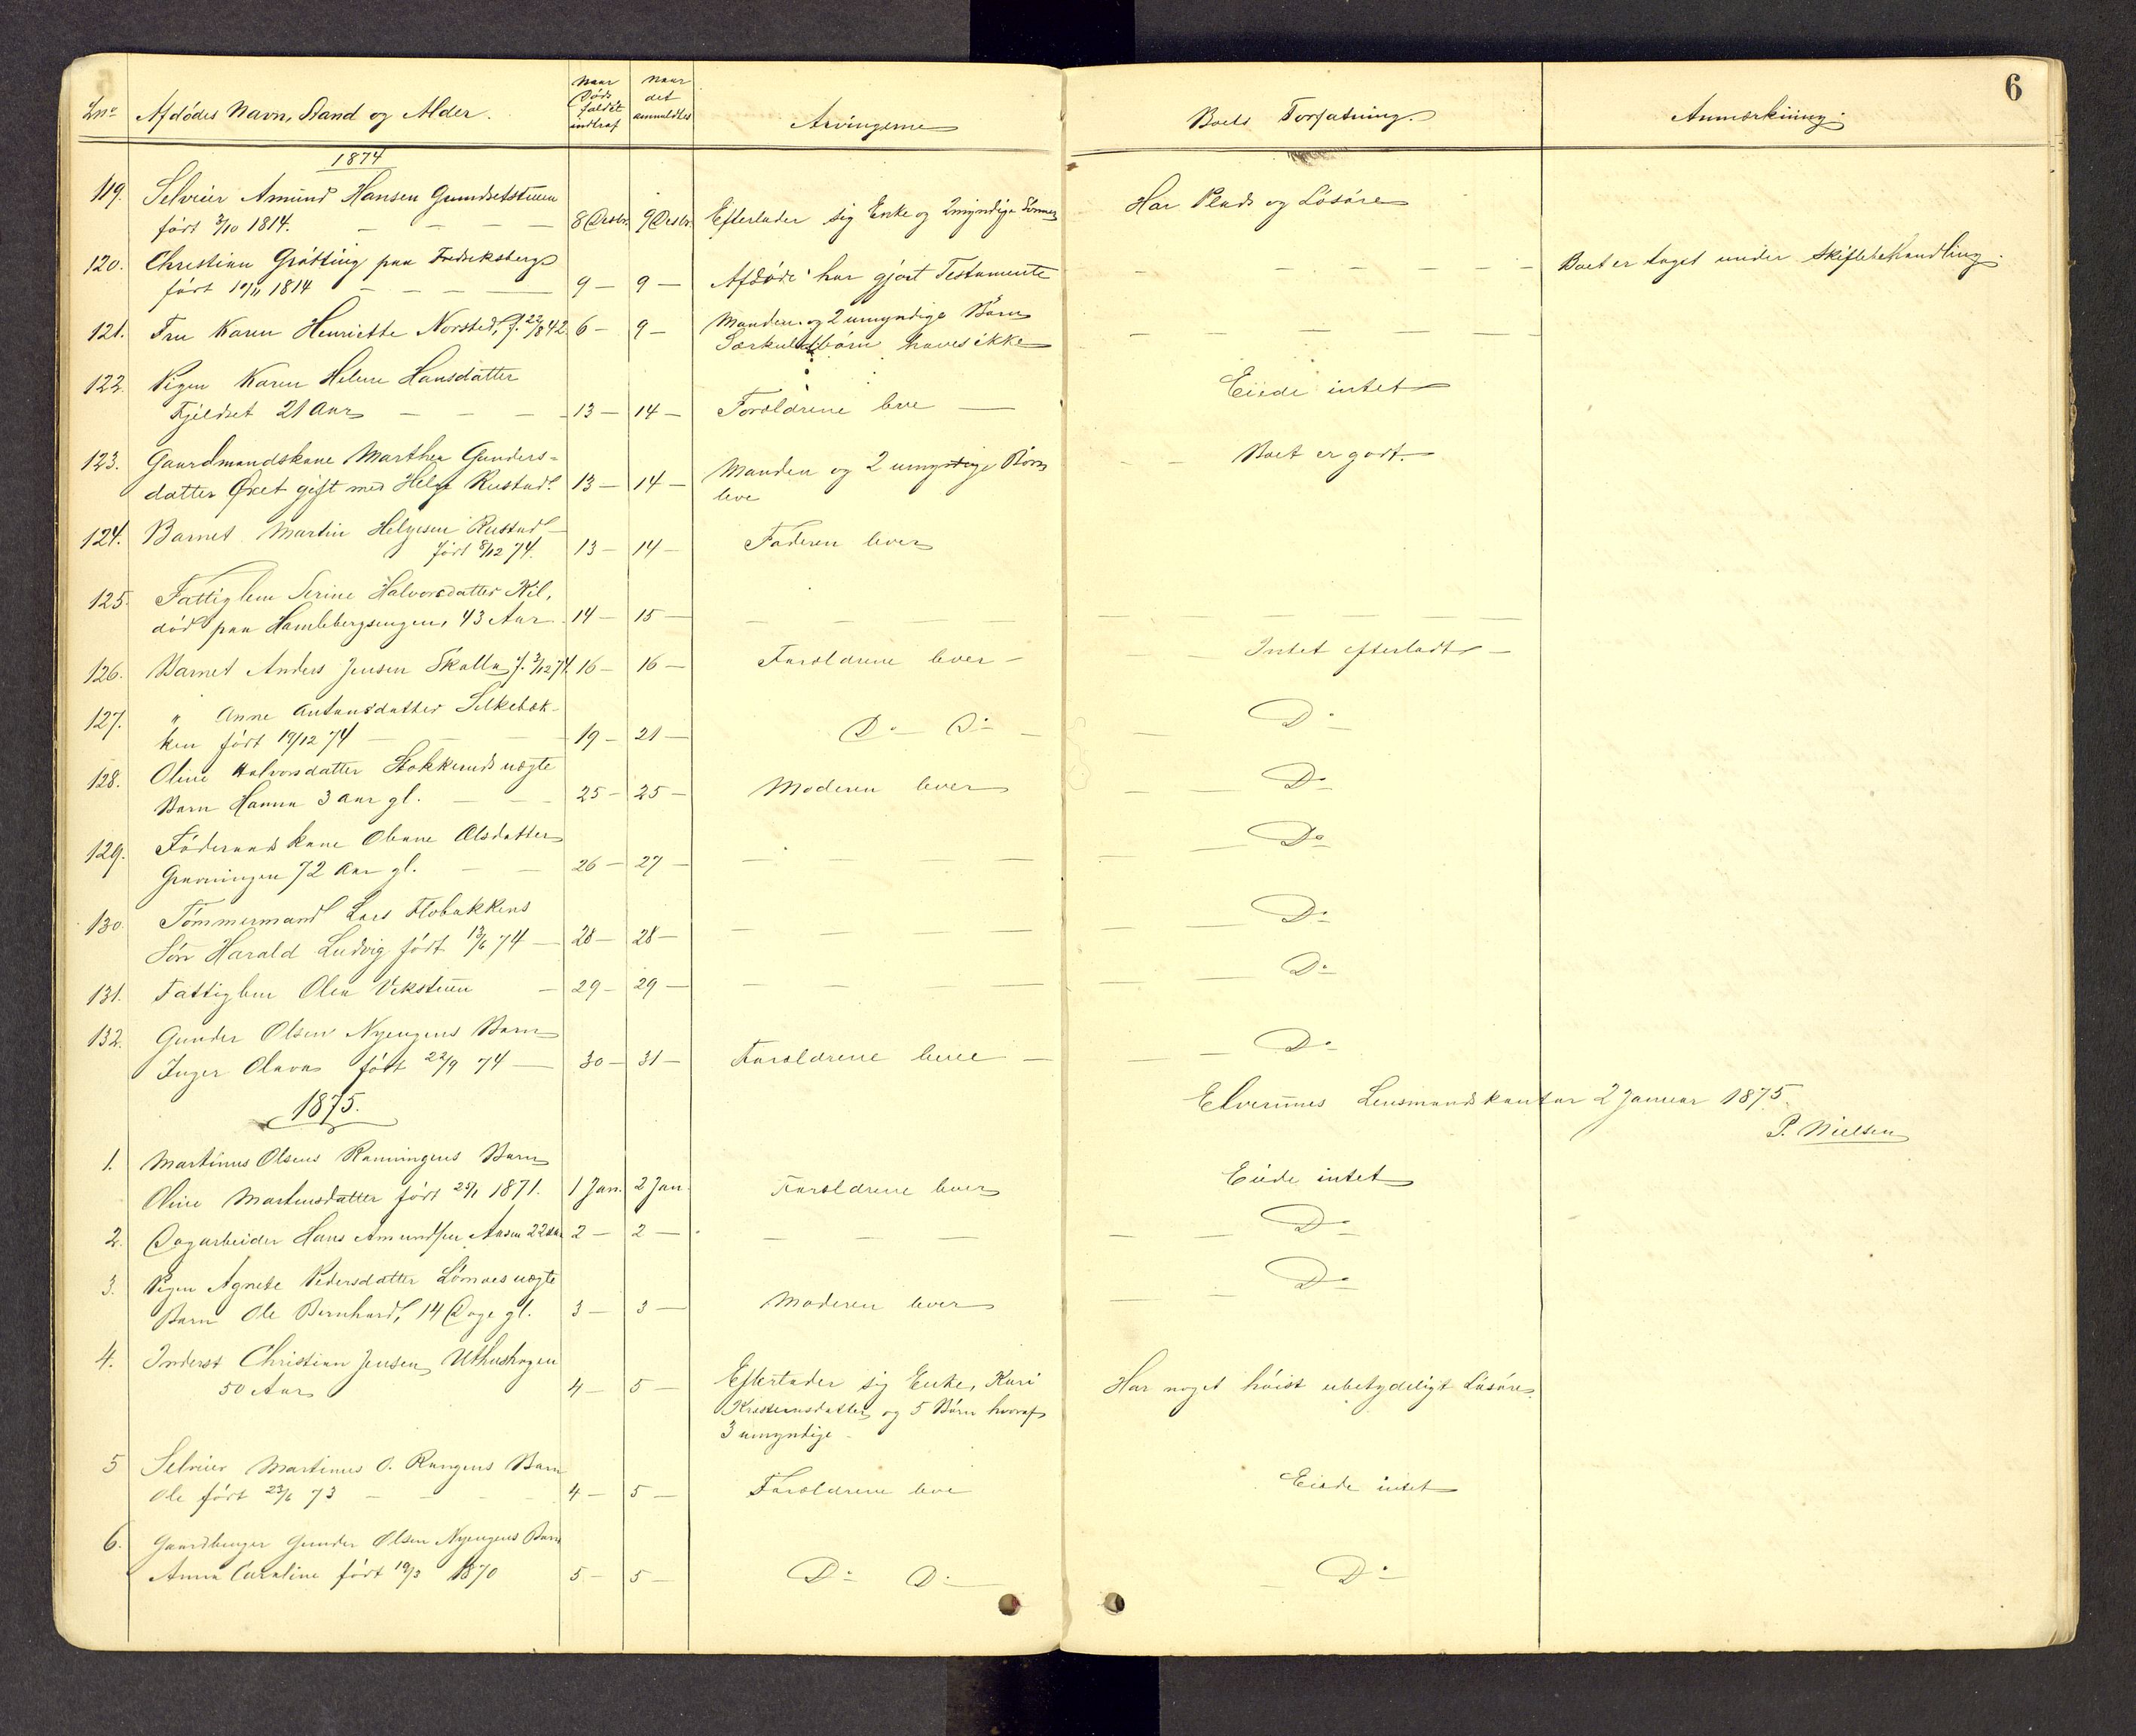 6
Lnr. Afdödes Navn, Stand og Alder. Naar Döds faldet indtraf Naar det anmeldtes Arvingerne Boets Forfatning. Anmærkning.
1874
119. Selveier Amund Hansen Grundsetstuen
född 3/10 1814. — 8 Decbr. 9 Decbr. Efterlader sig Enke og 2 myndige Sönner Har Plads og Lösöre
120. Christian Grötting paa Fredriksberg
född 10/11 1814 — 9 — 9 — Afdöde har gjort Testamente — Boet er taget under Skiftebehandling.
121. Fru Karen Henriette Norsted, f. 22/8 42 6 — 9 — Manden og 2 umyndige Börn
Særkuldbörn haves ikke —
122. Pigen Karen Helene Hansdatter
Fjeldset 21 Aar — 13 — 14 — Forældrene leve — Eiede intet
123. Gaardmandskone Marthea Gunders-
datter Öxet gift med Helge Rustad. 13 — 14 — Manden og 2 umyndige Börn
leve Boet er godt.
124. Barnet Martin Helgesen Rustad
födt 8/12 74. 13 — 14 — Faderen lever
125. Fattiglem Serine Halvorsdatter Kil,
död paa Hamlebergsengen, 43 Aar 14 — 15 —
126. Barnet Anders Jensen Skalla f. 3/12 74. 16 — 16 — Forældrene lever — Intet efterladt —
127. " Anne Antonsdatter Silkebæk-
ken födt 19/12 74 — 19 — 21 — Do Do Do
128. Oline Halvorsdatter Stokkeruds uægte
Barn Hanna 3 aar gl. — 25 — 25 — Moderen lever Do
129. Föderaads kone Oleane Olsdatter
Gravningen 72 Aar gl. — 26 — 27 — Do
130. Tömmermand Lars Flobakkens
Sön Harald Ludvig födt 13/6 74 — 28 — 28 — Do
131. Fattiglem Olea Vekstuen — 29 — 29 — Do
132. Gunder Olsen Nyengens Barn
Inger Olava födt 22/9 74 — 30 — 31 — Forældrene leve — Do
1875.
Elverums Lensmandskontor 2 Januar 1875.
P. Nielsen
1. Martinus Olsens Ranningens Barn
Oline Martinsdatter födt 25/1 1871. 1 Jan. 2 Jan. Forældrene lever Eiede intet
2. Dagarbeider Hans Amundsen Aasen 22 Aar 2 — 2 — Do
3. Pigen Agnete Pedersdatter Lömoes uægte
Barn Ole Bernhard, 14 Dage gl. 3 — 3 — Moderen lever Do
4. Inderst Christian Jensen Uthushagen
50 Aar 4 — 5 — Efterlader sig Enke, Kari
Kristensdatter og 5 Börn hvoraf
3 umyndige — Har noget höist ubetydeligt Lösöre.
5 Selveier Martinus O. Rangens Barn
Ole födt 23/6 73 — 4 — 5 — Forældrene leve Eiede intet
6. Gaardbruger Gunder Olsen Nyengens Barn
Anna Caroline födt 19/3 1870 5 — 5 — Do Do Do